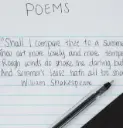 POEMS
"Shall I compare thee to a Summer
Thou art more lovely and more tempe
Rough winds do shake the darling bud
And Summer's lease hath all too sho
William Shakespeare